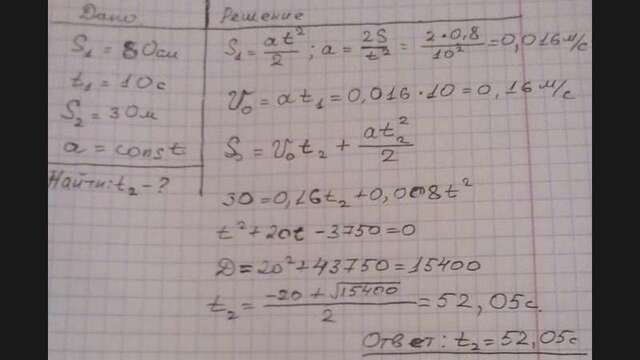 Дано
S₁ = 80см
t₁ = 10с
S₂ = 30м
a = const
Найти: t₂ - ?
Решение
S₁ = at²/2 ; a = 2S/t² = 2·0,8/10² = 0,016 м/с
V₀ = at₁ = 0,016·10 = 0,16 м/с
S = V₀t₂ + at₂²/2
30 = 0,16t₂ + 0,008t²
t² + 20t - 3750 = 0
D = 20² + 43750 = 15400
t₂ = -20 + √15400/2 = 52,05с.
Ответ: t₂ = 52,05с